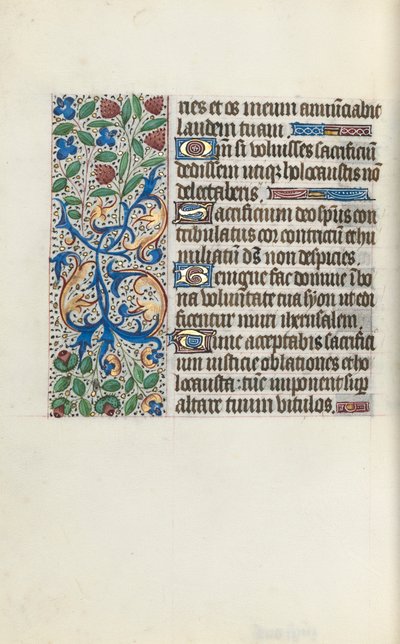 ries et os meum annūciabit
laudem tuam.
Qm̄ si voluisses sacrificiū
dedissem utiqꝫ holocaustis nō
delectaberis.
Sacrificium deo sp̄us con
tribulatus cor contritū et hu
miliatū ds̄ non despicies.
Benigne fac domine ī bo
na voluntate tua syon ut edi
ficentur muri iherusalem.
Tunc acceptabis sacrifici
um iusticie oblationes et ho
locausta: tūc imponent suꝑ
altare tuum vitulos.